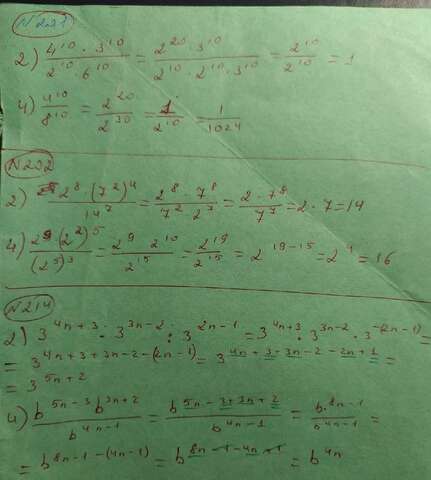 N 201
2) (4^10 · 3^10)/(2^10 · 6^10) = (2^20 · 3^10)/(2^10 · 2^10 · 3^10) = 2^10/2^10 = 1
4) 4^10/8^10 = 2^20/2^30 = 1/2^10 = 1/1024
N 202
2) (2^8 · (7^2)^4)/14^7 = (2^8 · 7^8)/(7^7 · 2^7) = (2 · 7^8)/7^7 = 2 · 7 = 14
4) (2^9 · (2^2)^5)/(2^5)^3 = (2^9 · 2^10)/2^15 = 2^19/2^15 = 2^(19-15) = 2^4 = 16
N 214
2) 3^(4n+3) · 3^(3n-2) : 3^(2n-1) = 3^(4n+3) · 3^(3n-2) · 3^(-(2n-1)) =
= 3^(4n+3+3n-2-(2n-1)) = 3^(4n+3-3n-2-2n+1) =
= 3^(5n+2)
4) (b^(5n-3) b^(3n+2))/b^(4n-1) = b^(5n-3+3n+2)/b^(4n-1) = b^(8n-1)/b^(4n-1) =
= b^(8n-1-(4n-1)) = b^(8n-1-4n+1) = b^(4n)